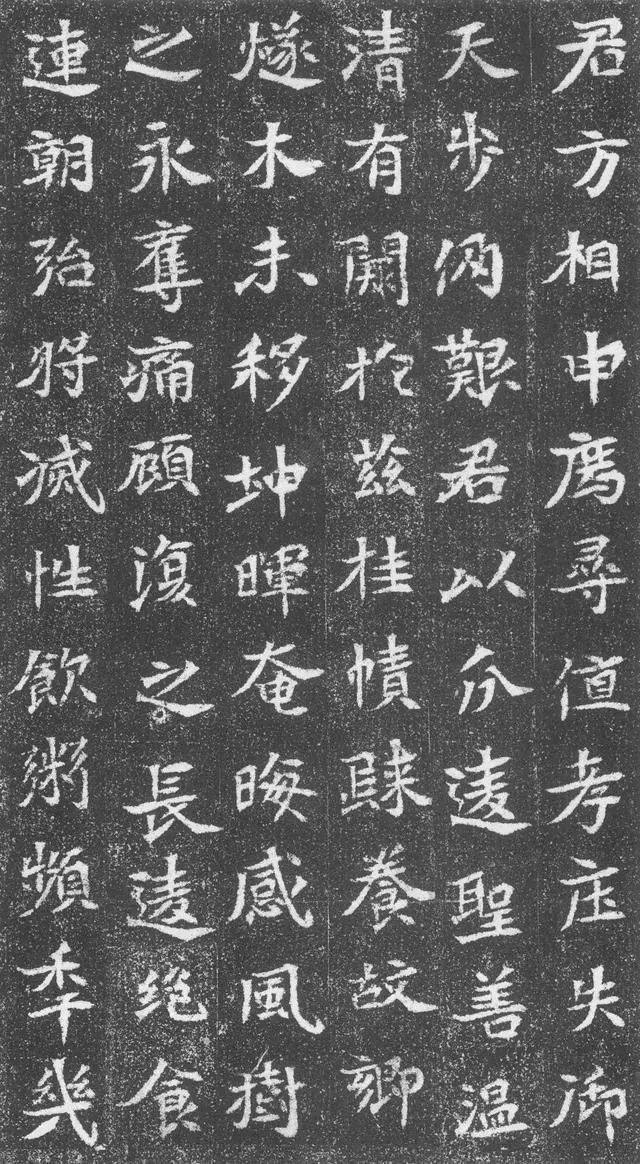 君方相申厲尋值孝庄失御
天步艱君以違聖善溫
清有闕於茲挂幘踈養故鄉
燧木未移坤暉奄晦感風樹
之永奪痛顧復之長違絕食
連朝殆將滅性飲粥頻秊幾